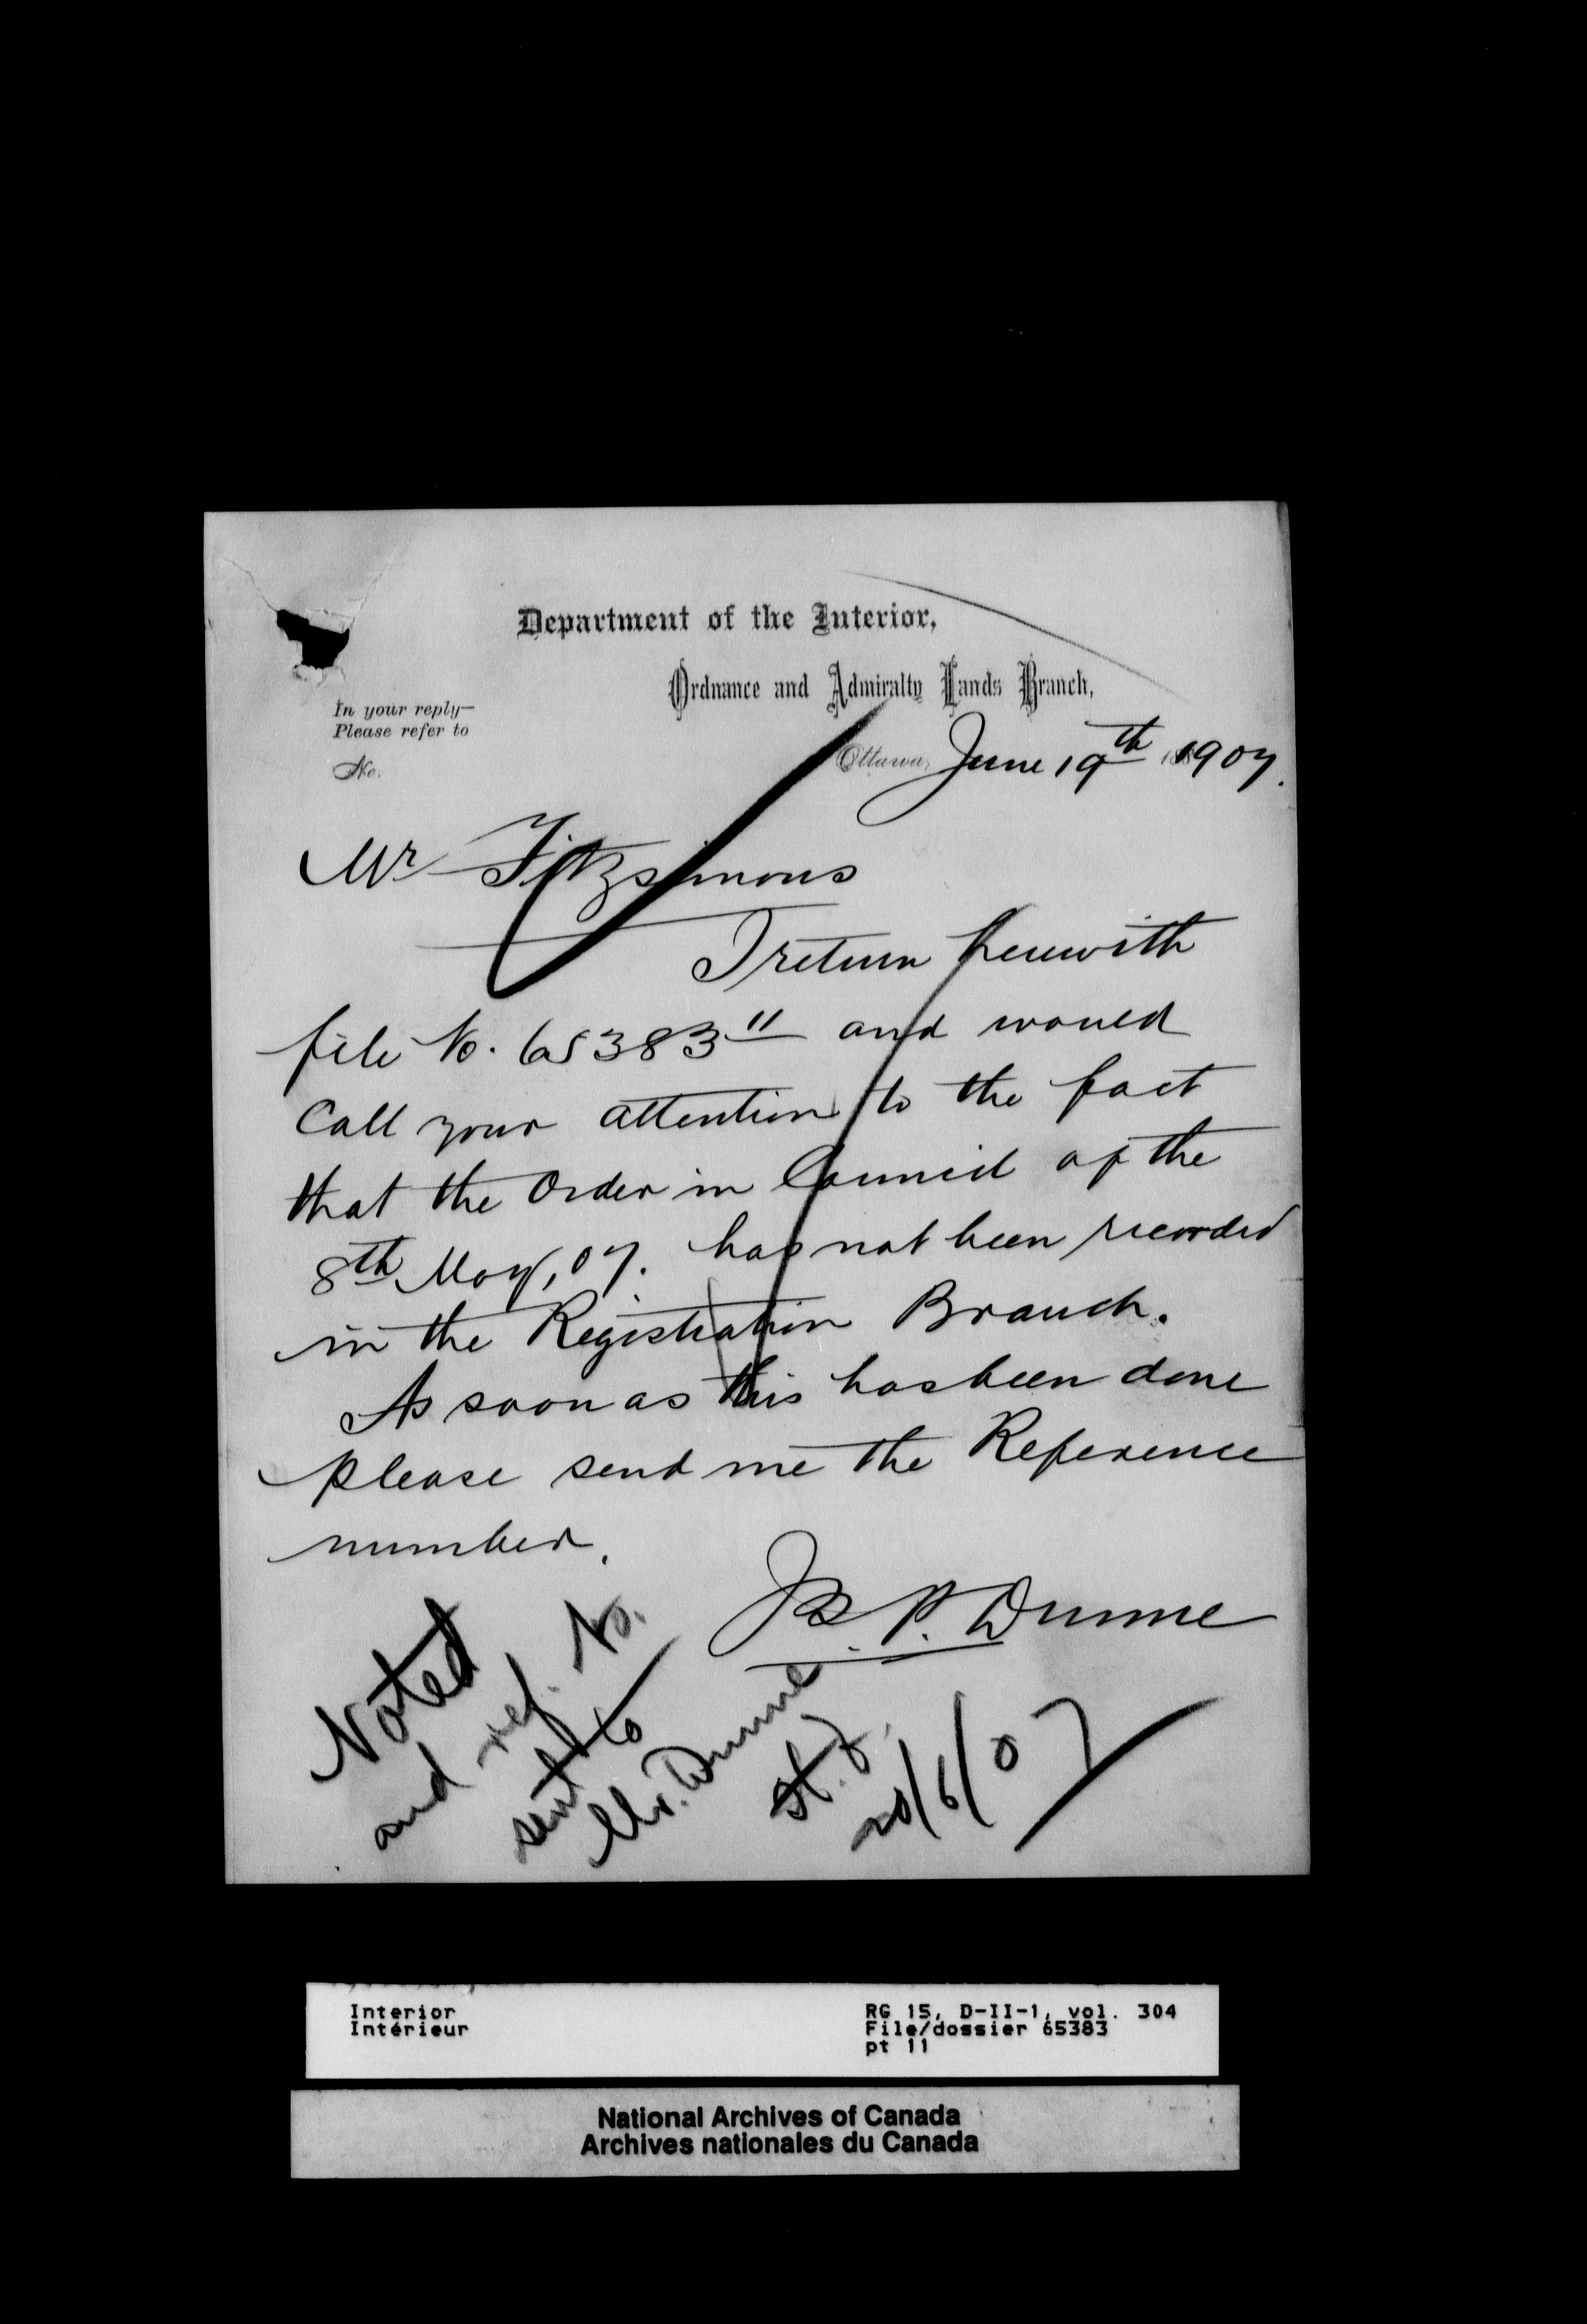 Department of the Interior,
Ordnance and Admiralty Lands Branch,
In your reply—
Please refer to
No.
Ottawa, June 19th 1907.
Mr Fitzsimons
I return herewith
file No. 65383 11 and would
Call your attention to the fact
that the Order in Council of the
8th May, 07. has not been recorded
in the Registration Branch.
As soon as this has been done
please send me the Reference
number.
P. Dunne
Noted
and ref. No.
sent to
Mr. Dunne
20/6/07
Interior
Intérieur
RG 15, D-II-1, vol. 304
File/dossier 65383
pt 11
National Archives of Canada
Archives nationales du Canada